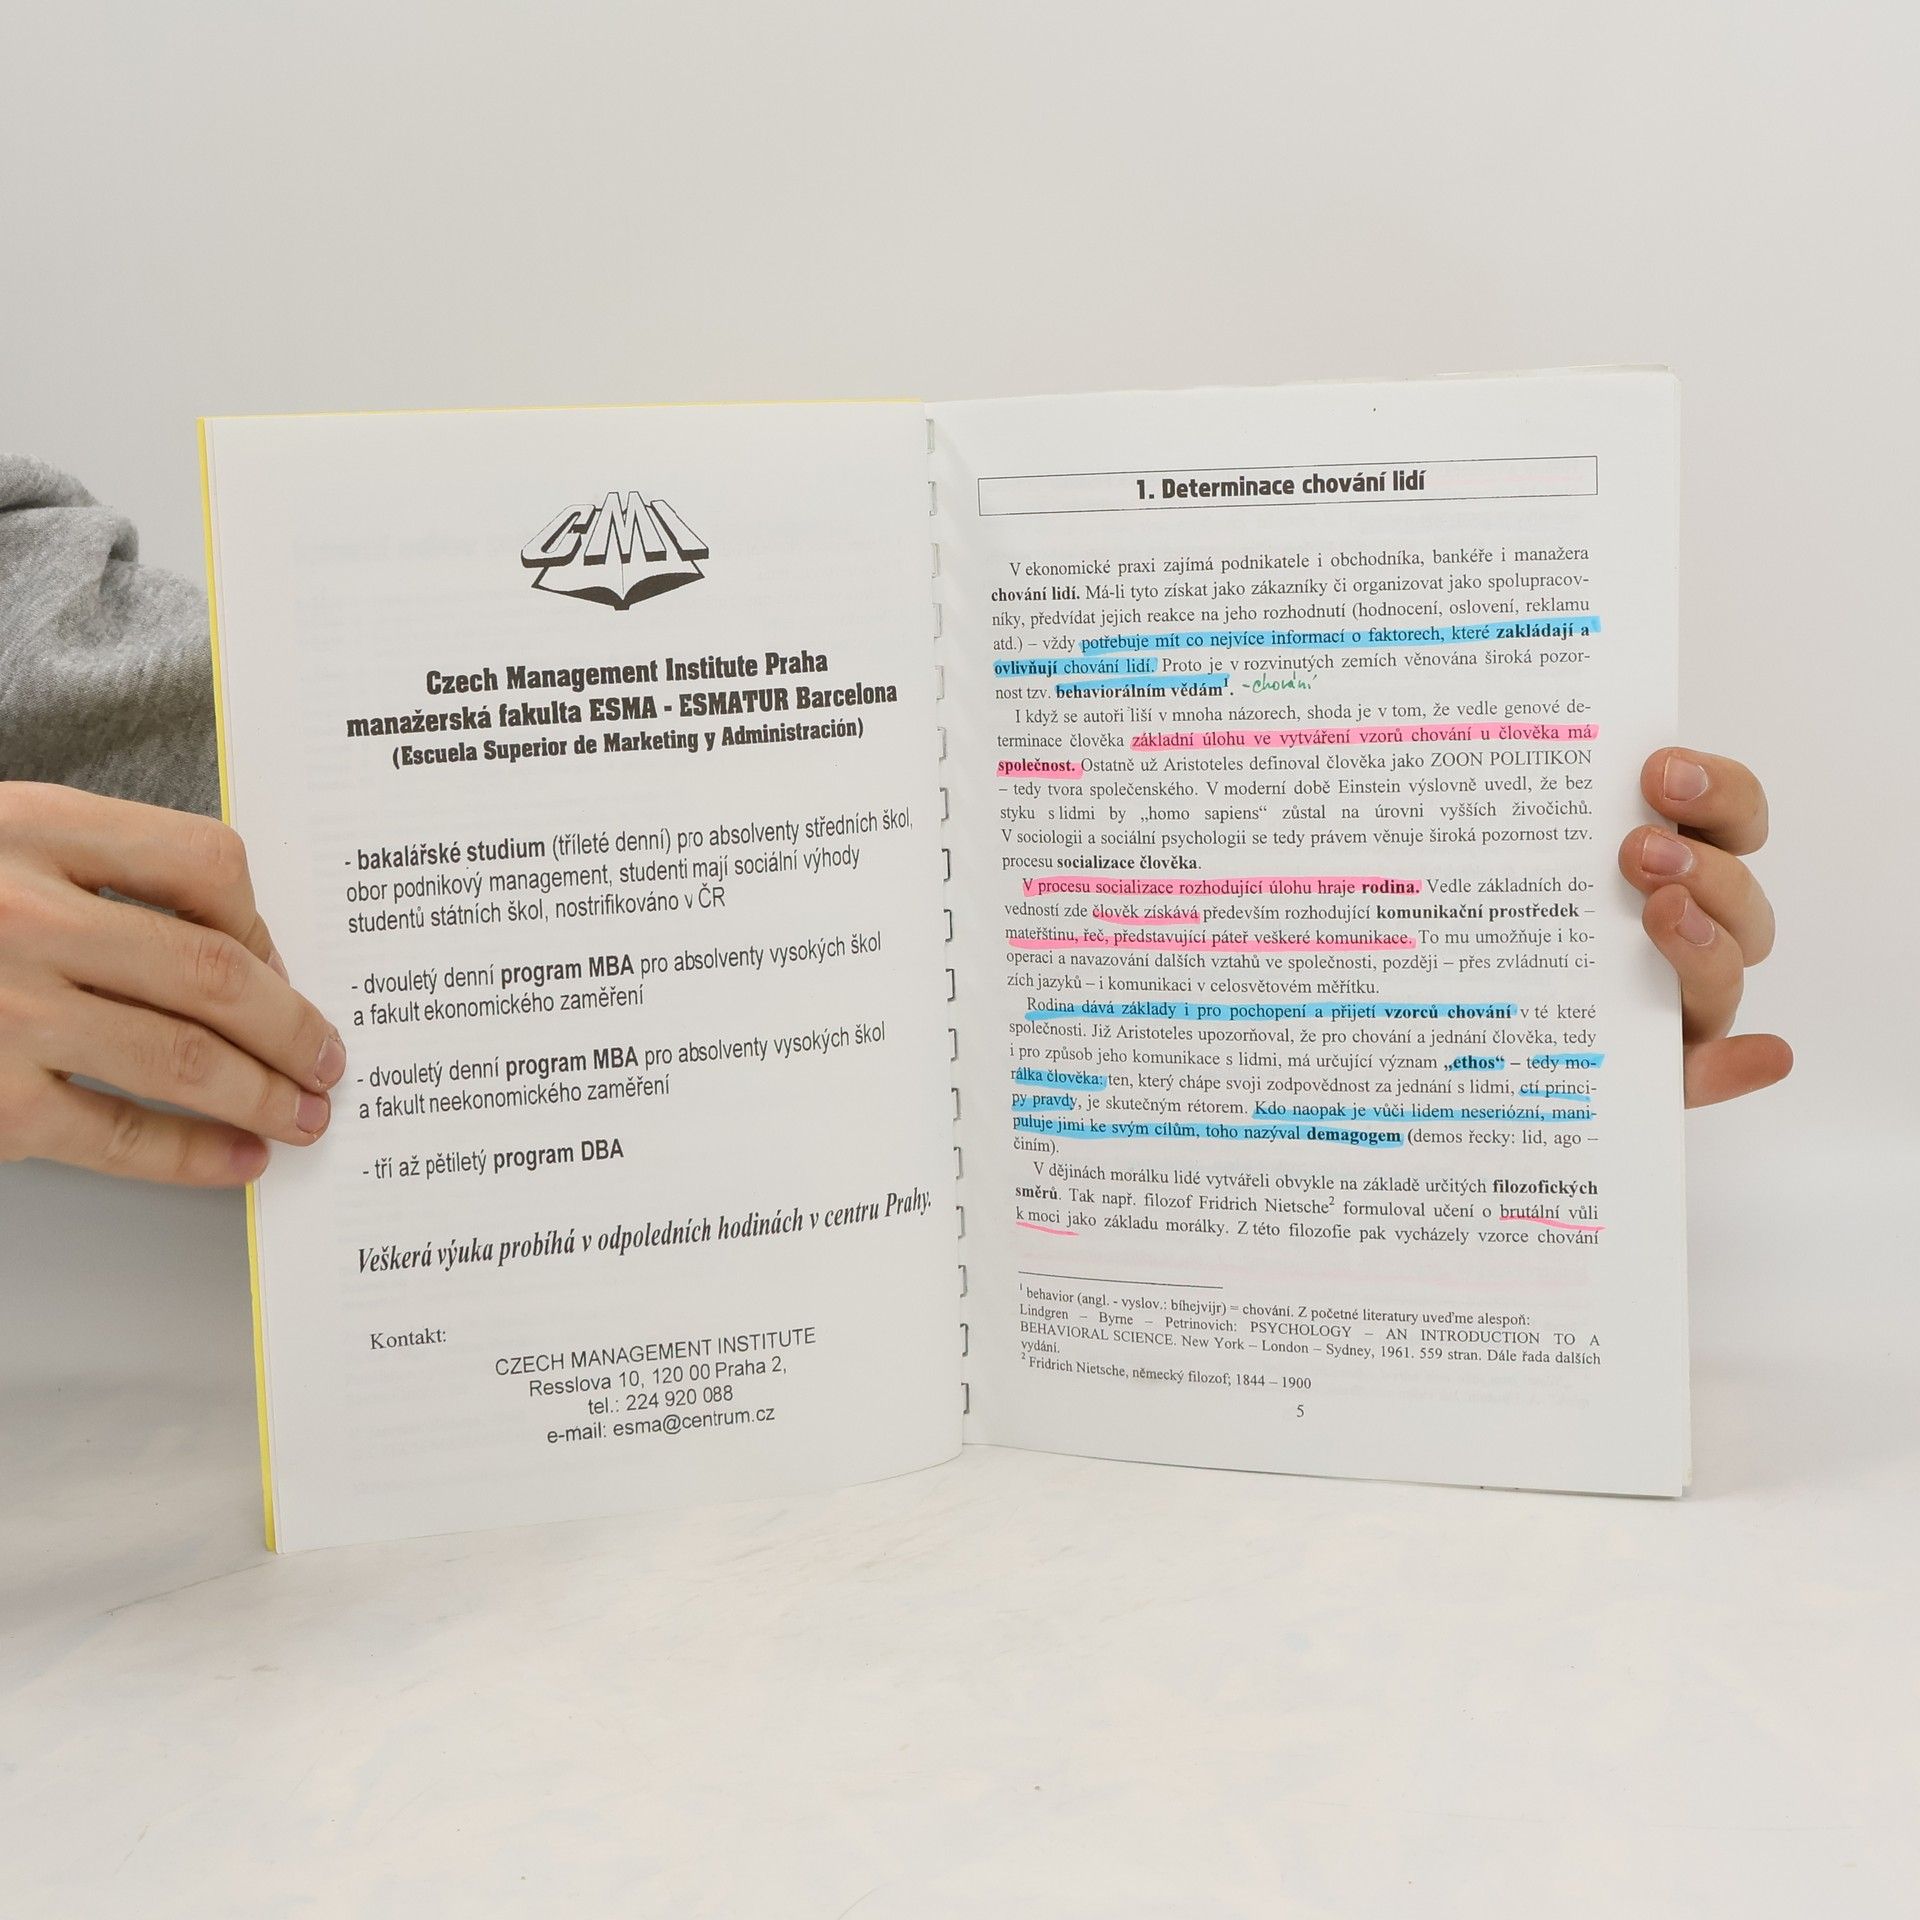 CMI
Czech Management Institute Praha
manažerská fakulta ESMA - ESMATUR Barcelona
(Escuela Superior de Marketing y Administración)
- bakalářské studium (tříleté denní) pro absolventy středních škol,
obor podnikový management, studenti mají sociální výhody
studentů státních škol, nostrifikováno v ČR
- dvouletý denní program MBA pro absolventy vysokých škol
a fakult ekonomického zaměření
- dvouletý denní program MBA pro absolventy vysokých škol
a fakult neekonomického zaměření
- tří až pětiletý program DBA
Veškerá výuka probíhá v odpoledních hodinách v centru Prahy.
Kontakt:
CZECH MANAGEMENT INSTITUTE
Resslova 10, 120 00 Praha 2,
tel.: 224 920 088
e-mail: esma@centrum.cz
1. Determinace chování lidí
V ekonomické praxi zajímá podnikatele i obchodníka, bankéře i manažera
chování lidí. Má-li tyto získat jako zákazníky či organizovat jako spolupracov-
níky, předvídat jejich reakce na jeho rozhodnutí (hodnocení, oslovení, reklamu
atd.) – vždy potřebuje mít co nejvíce informací o faktorech, které zakládají a
ovlivňují chování lidí. Proto je v rozvinutých zemích věnována široká pozor-
nost tzv. behaviorálním vědám¹. - chování
I když se autoři liší v mnoha názorech, shoda je v tom, že vedle genové de-
terminace člověka základní úlohu ve vytváření vzorů chování u člověka má
společnost. Ostatně už Aristoteles definoval člověka jako ZOON POLITIKON
– tedy tvora společenského. V moderní době Einstein výslovně uvedl, že bez
styku s lidmi by „homo sapiens“ zůstal na úrovni vyšších živočichů.
V sociologii a sociální psychologii se tedy právem věnuje široká pozornost tzv.
procesu socializace člověka.
V procesu socializace rozhodující úlohu hraje rodina. Vedle základních do-
vedností zde člověk získává především rozhodující komunikační prostředek –
mateřštinu, řeč, představující páteř veškeré komunikace. To mu umožňuje i ko-
operaci a navazování dalších vztahů ve společnosti, později – přes zvládnutí ci-
zích jazyků – i komunikaci v celosvětovém měřítku.
Rodina dává základy i pro pochopení a přijetí vzorců chování v té které
společnosti. Již Aristoteles upozorňoval, že pro chování a jednání člověka, tedy
i pro způsob jeho komunikace s lidmi, má určující význam „ethos“ – tedy mo-
rálka člověka: ten, který chápe svoji zodpovědnost za jednání s lidmi, ctí princi-
py pravdy, je skutečným rétorem. Kdo naopak je vůči lidem neseriózní, mani-
puluje jimi ke svým cílům, toho nazýval demagogem (demos řecky: lid, ago –
činím).
V dějinách morálku lidé vytvářeli obvykle na základě určitých filozofických
směrů. Tak např. filozof Fridrich Nietsche² formuloval učení o brutální vůli
k moci jako základu morálky. Z této filozofie pak vycházely vzorce chování
¹ behavior (angl. - vyslov.: bíhejvijr) = chování. Z početné literatury uveďme alespoň:
Lindgren – Byrne – Petrinovich: PSYCHOLOGY – AN INTRODUCTION TO A
BEHAVIORAL SCIENCE. New York – London – Sydney, 1961. 559 stran. Dále řada dalších
vydání.
² Fridrich Nietsche, německý filozof; 1844 – 1900
5